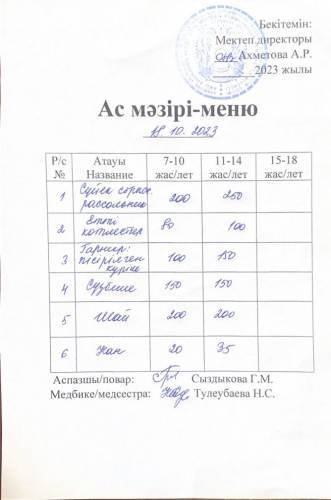 Бекітемін:
Мектеп директоры
Ахметова А.Р.
2023 жылы
Ас мәзірі-меню
18.10.2023
Р/с № Атауы Название 7-10 жас/лет 11-14 жас/лет 15-18 жас/лет
1 Сүйек сорпа рассольник 200 250
2 Етті котлеттер 80 100
3 Гарнир: пісірілген күріш 100 150
4 Сүзбеше 150 150
5 Шай 200 200
6 Нан 20 35
Аспазшы/повар: Сыздыкова Г.М.
Медбике/медсестра: Тулеубаева Н.С.